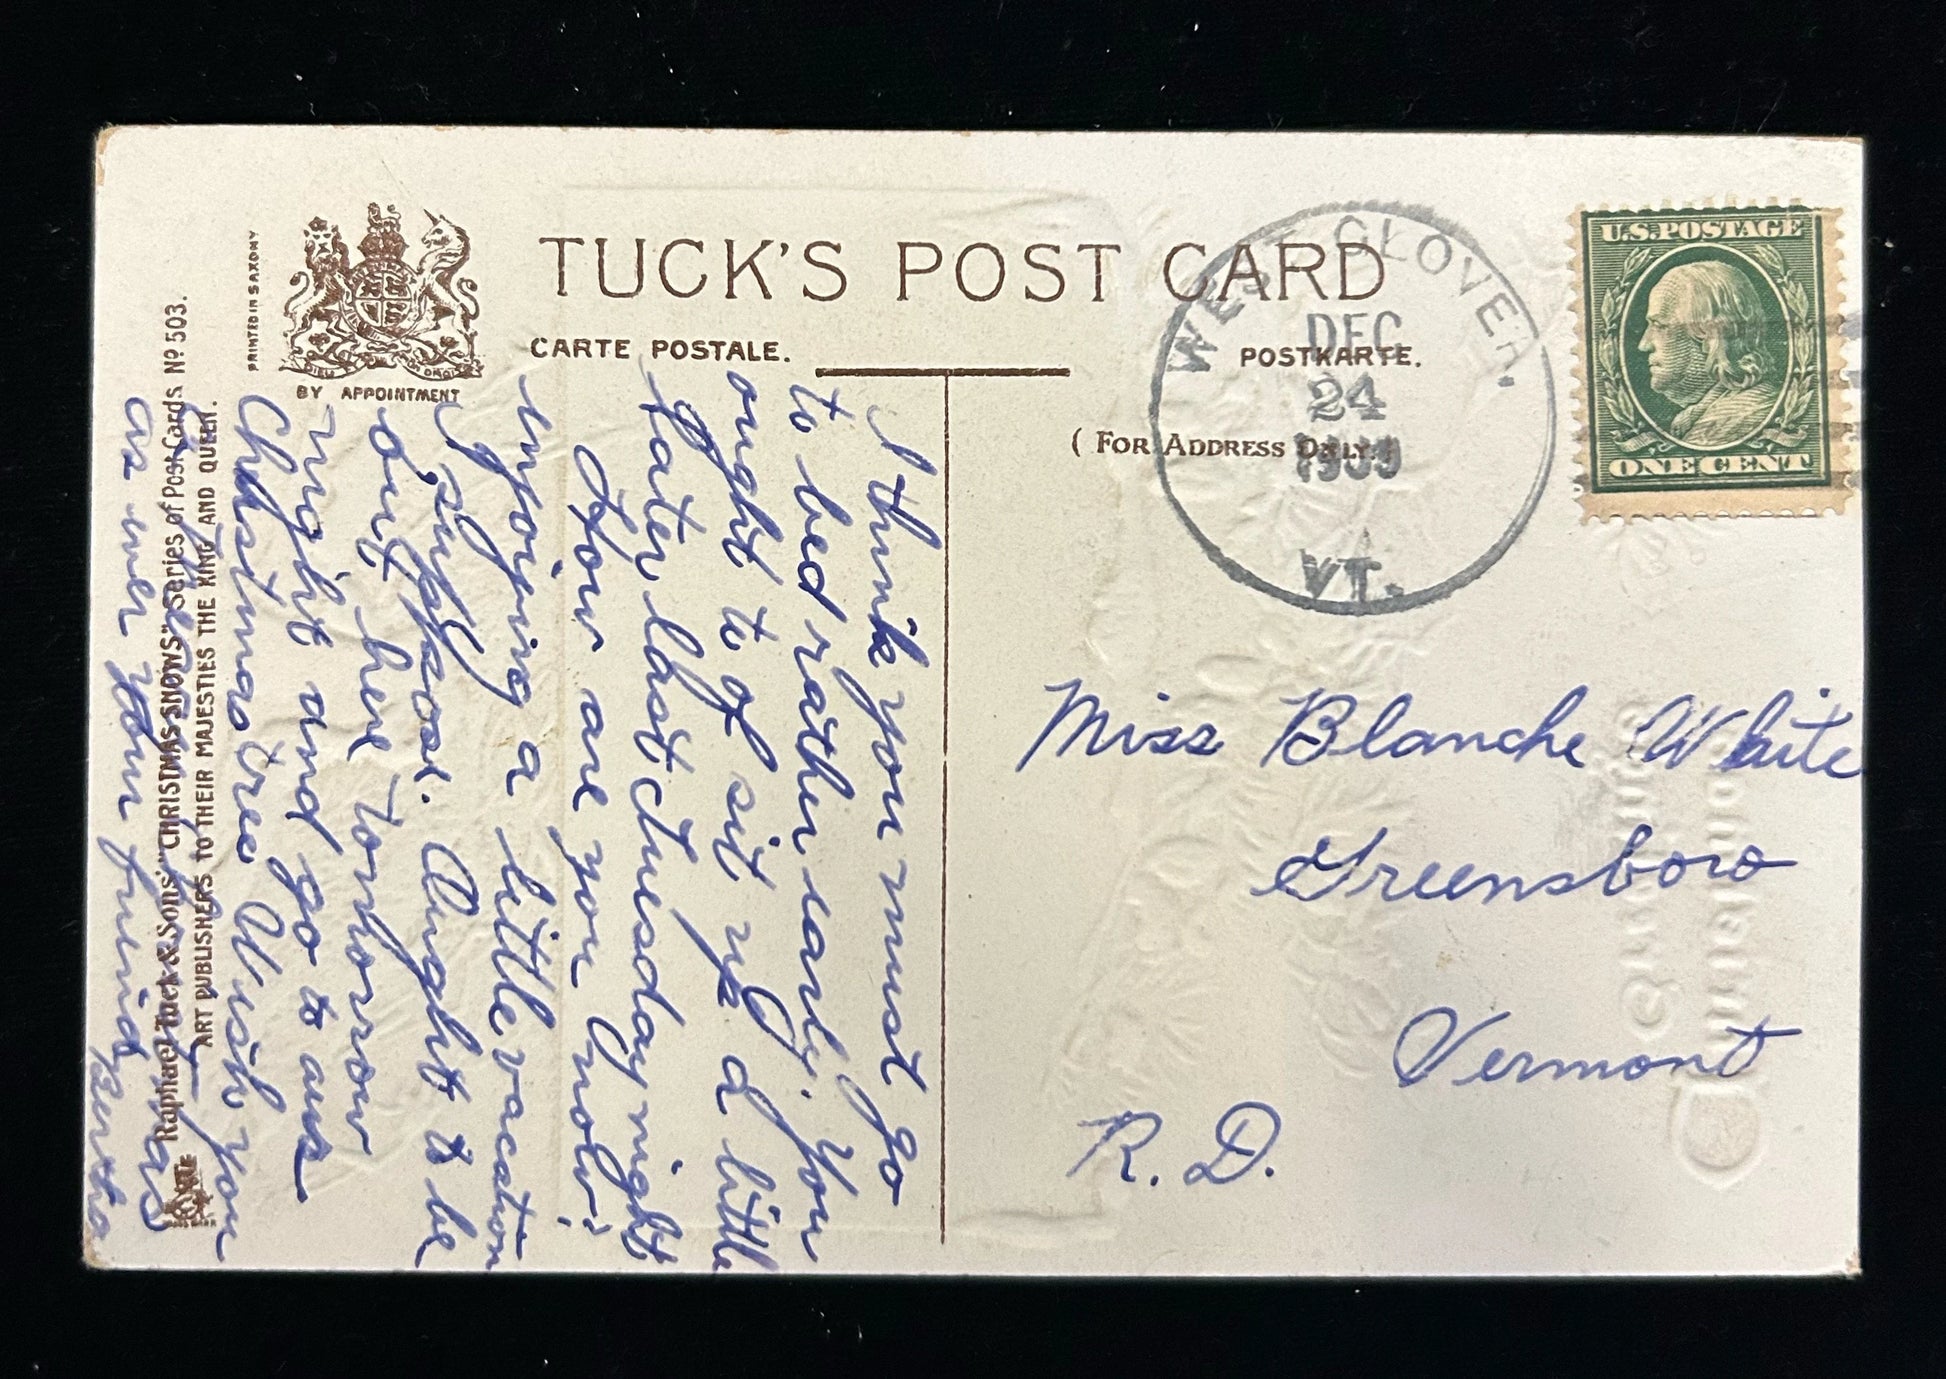 TUCK'S POST CARD
CARTE POSTALE.
POSTKARTE.
(FOR ADDRESS ONLY.)
BY APPOINTMENT
DIEU ET MON DROIT
PRINTED IN SAXONY
Raphael Tuck & Sons' "CHRISTMAS SNOWS" Series of Post Cards Nº 503.
ART PUBLISHERS TO THEIR MAJESTIES THE KING AND QUEEN.
WEST GLOVER.
DEC
24
1909
VT.
U.S. POSTAGE
ONE CENT
I think you must go
to bed rather early. You
ought to of sit up a little
later last tuesday night
How are you? Now
enjoying a little vacation
I suppose. Aught to be
out here tomorrow
night and go to our
Christmas tree Wish you
as ever your friend Bertha
Miss Blanche White
Greensboro
Vermont
R. D.